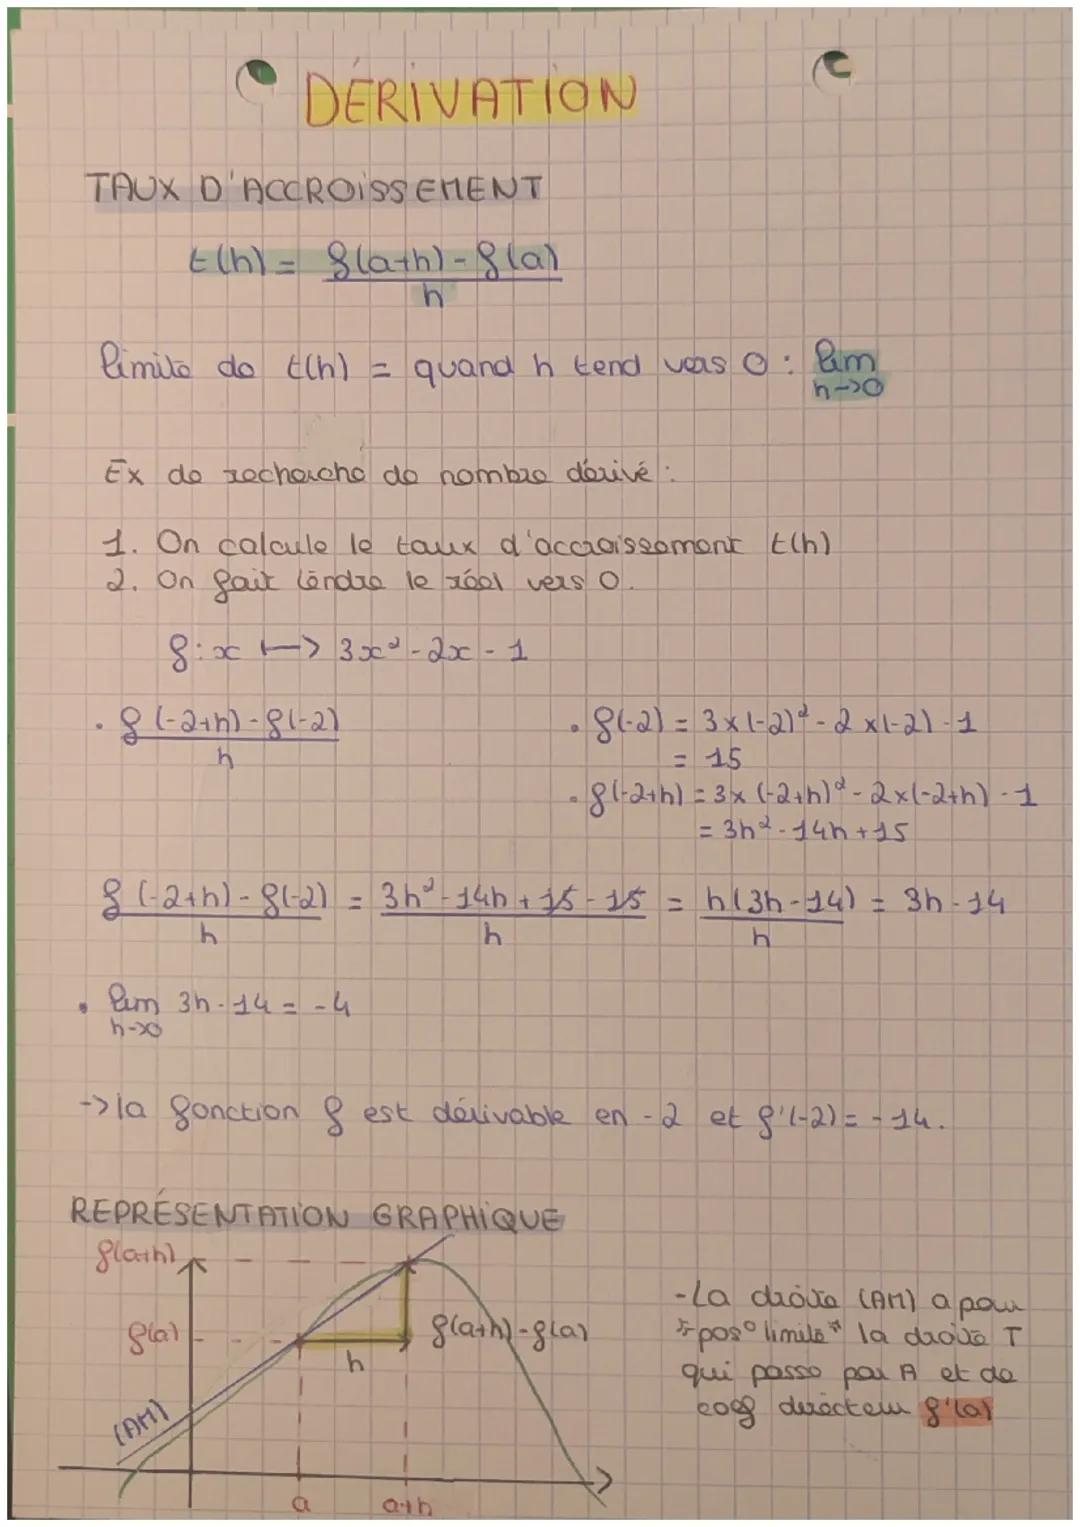 DÉRIVATION
TAUX D'ACCROISSEMENT
t(h) = f(a+h) - f(a)
h
limite de t(h) = quand h tend vers 0 : lim
h->0
Ex de recherche de nombre dérivé :
1. On calcule le taux d'accroissement t(h)
2. On fait tendre le réel vers 0.
f : x ↦ 3x² - 2x - 1
• f(-2+h) - f(-2)
h
• f(-2) = 3 x (-2)² - 2 x (-2) - 1
= 15
• f(-2+h) = 3 x (-2+h)² - 2 x (-2+h) - 1
= 3h² - 14h + 15
f(-2+h) - f(-2) = 3h² - 14h + 15 - 15 = h(3h - 14) = 3h - 14
h h h
• lim 3h - 14 = -4
h->0
-> la fonction f est dérivable en -2 et f'(-2) = -14.
REPRÉSENTATION GRAPHIQUE
f(a+h)
f(a)
f(a+h) - f(a)
h
(AM)
a a+h
- La droite (AM) a pour
"pos° limite" la droite T
qui passe par A et de
coef directeur f'(a)